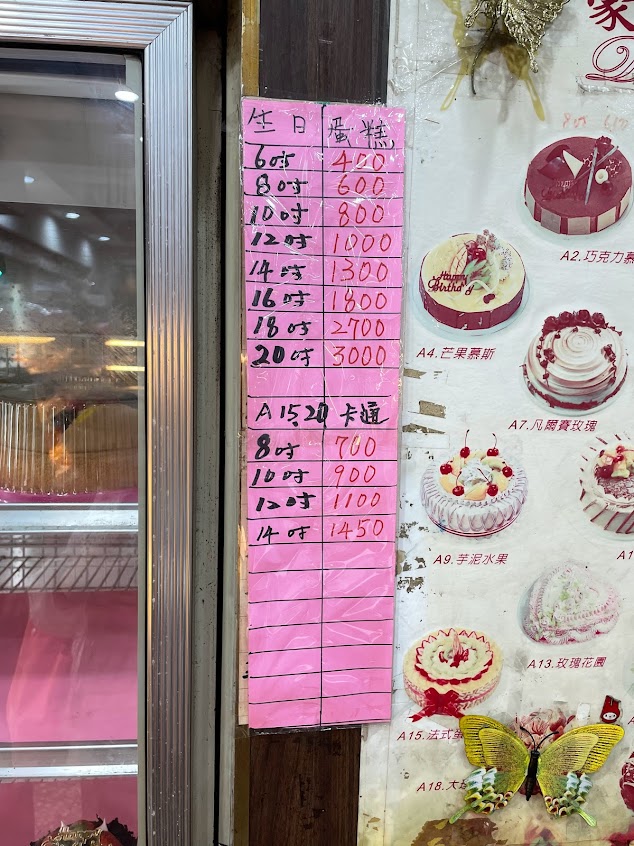 生日 蛋糕
6吋 400
8吋 600
10吋 800
12吋 1000
14吋 1300
16吋 1800
18吋 2700
20吋 3000
A 15.20 卡通
8吋 700
10吋 900
12吋 1100
14吋 1450
豪
A2.巧克力慕
Happy
Birthday
A4.芒果慕斯
A7.凡爾賽玫瑰
A9.芋泥水果
A1
A13.玫瑰花園
A15.法式蛋
A18.大